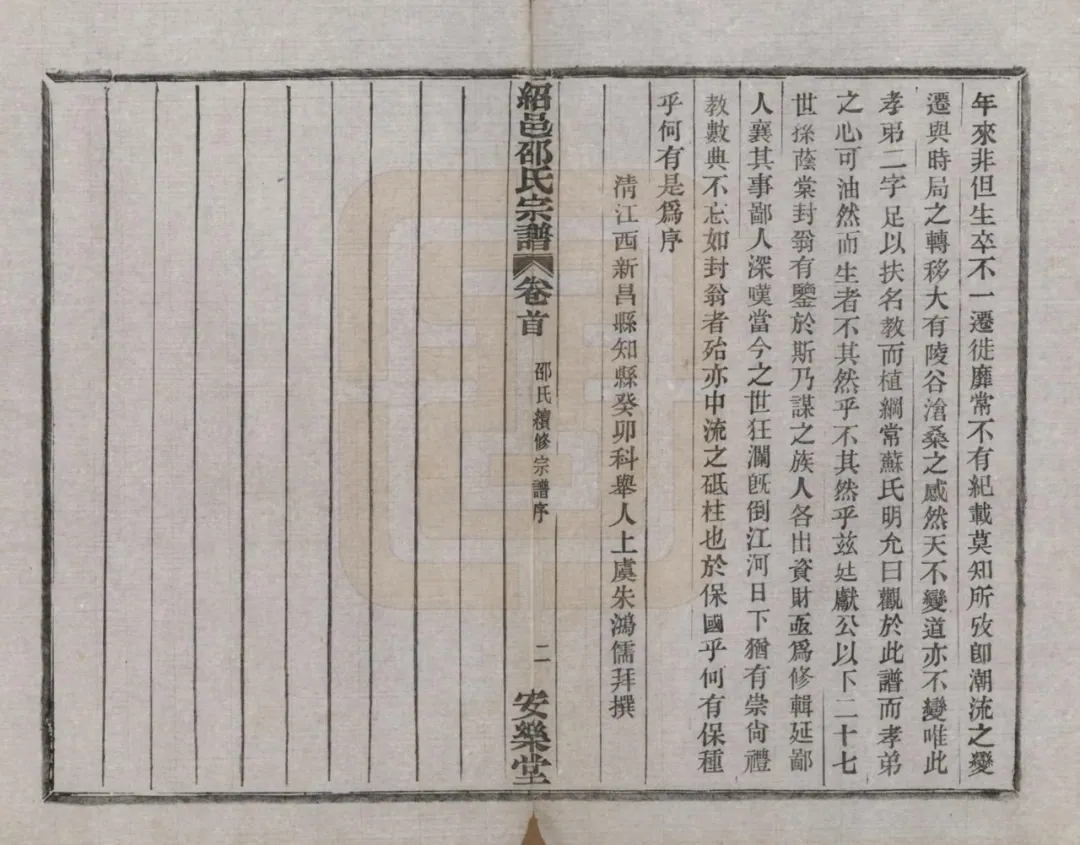 年來非但生卒不一遷徙靡常不有紀載莫知所攷卽潮流之變
遷與時局之轉移大有陵谷滄桑之感然天不變道亦不變唯此
孝弟二字足以扶名教而植綱常蘇氏明允曰觀於此譜而孝弟
之心可油然而生者不其然乎不其然乎玆廷獻公以下二十七
世孫蔭棠封翁有鑒於斯乃謀之族人各出資財亟爲修輯延鄙
人襄其事鄙人深嘆當今之世狂瀾旣倒江河日下猶有崇尙禮
教數典不忘如封翁者殆亦中流之砥柱也於保國乎何有保種
乎何有是爲序
淸江西新昌縣知縣癸卯科舉人上虞朱鴻儒拜撰
紹邑邵氏宗譜 卷首 邵氏續修宗譜序 二 安樂堂